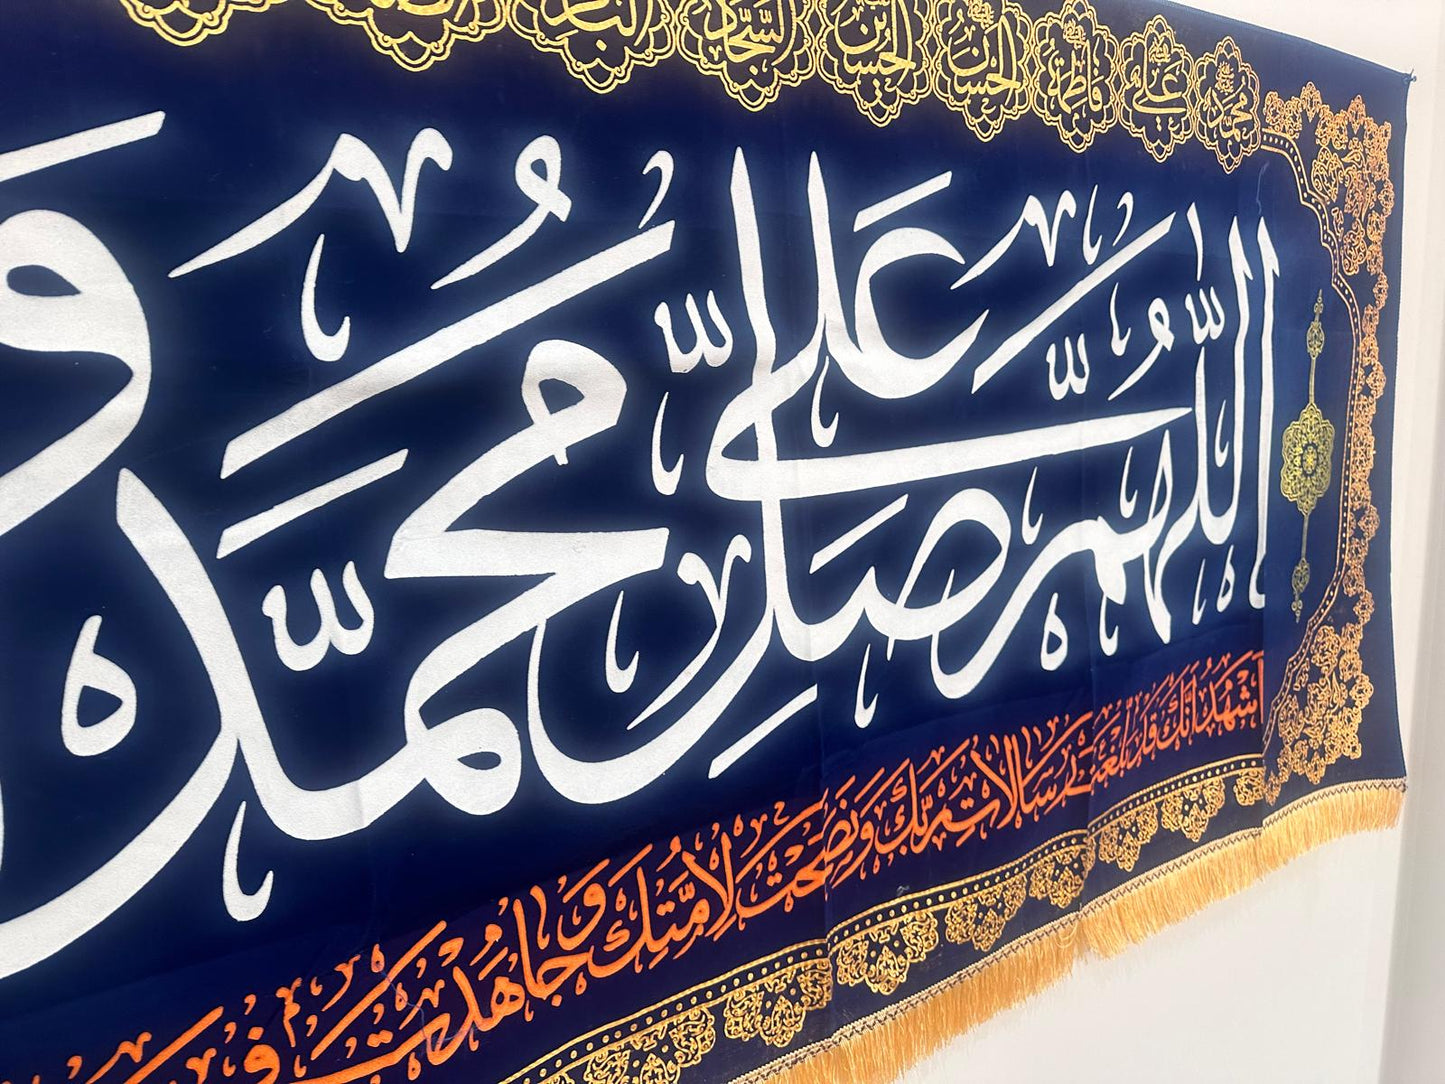 محمد علي فاطمة الحسن الحسين السجاد الباقر
اللّٰهُمَّ صَلِّ عَلَىٰ مُحَمَّدٍ وَ
اَشْهَدُ اَنَّكَ قَدْ بَلَّغْتَ رِسَالَاتِ رَبِّكَ وَنَصَحْتَ لِاُمَّتِكَ وَجَاهَدْتَ في